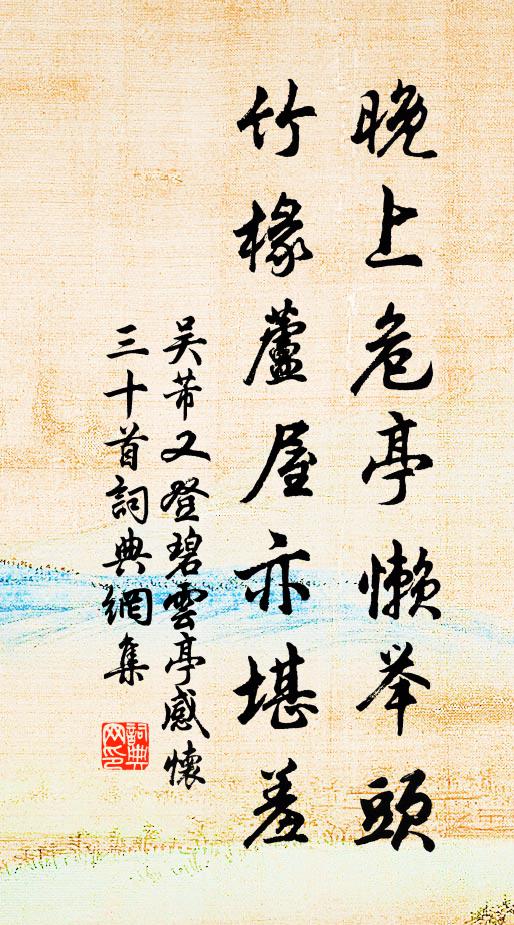 晚上危亭懒举頭
竹椽蘆屋亦堪羞
吴芾又登碧雲亭感懷
三十首詞典網集
詞典
网印